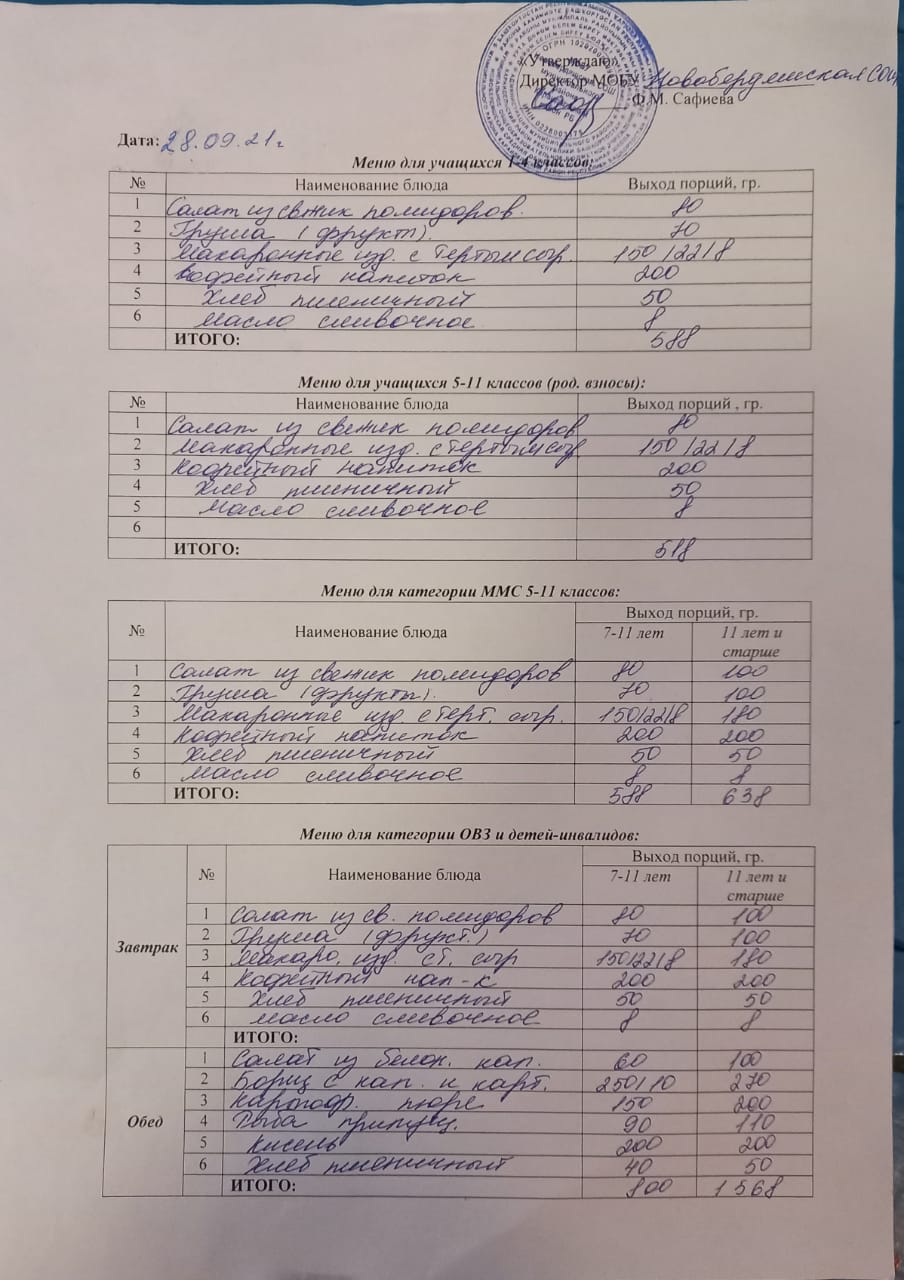 «Утверждаю»
Директор МОБУ Новобердяшская СОШ
Ф.М. Сафиева
Дата: 28.09.21г
Меню для учащихся 1-4 классов:
№ Наименование блюда Выход порций, гр.
1 Салат из свежих помидоров. 80
2 Груша (фрукты). 70
3 Макаронные изд. с тертым сыр. 150/22/8
4 Кофейный напиток 200
5 Хлеб пшеничный 50
6 Масло сливочное 8
ИТОГО: 588
Меню для учащихся 5-11 классов (род. взносы):
№ Наименование блюда Выход порций , гр.
1 Салат из свежих помидоров 80
2 Макаронные изд. с тертым сыр 150/22/8
3 Кофейный напиток 200
4 Хлеб пшеничный 50
5 Масло сливочное 8
6
ИТОГО: 518
Меню для категории ММС 5-11 классов:
№ Наименование блюда Выход порций, гр.
7-11 лет 11 лет и
старше
1 Салат из свежих помидоров 80 100
2 Груша (фрукты). 70 100
3 Макаронные изд с терт. сыр. 150/22/8 180
4 Кофейный напиток 200 200
5 Хлеб пшеничный 50 50
6 Масло сливочное 8 8
ИТОГО: 588 638
Меню для категории ОВЗ и детей-инвалидов:
№ Наименование блюда Выход порций, гр.
7-11 лет 11 лет и
старше
Завтрак
1 Салат из св. помидоров 80 100
2 Груша (фрукт.) 70 100
3 Макаро. изд. с т. сыр 150/22/8 180
4 Кофейный нап-к 200 200
5 Хлеб пшеничный 50 50
6 Масло сливочное 8 8
ИТОГО:
Обед
1 Салат из белок. кап. 60 100
2 Борщ с кап. и карт. 250/10 270
3 Картоф. пюре 150 200
4 Рыба припущ. 90 110
5 Кисель 200 200
6 Хлеб пшеничный 40 50
ИТОГО: 800 1568